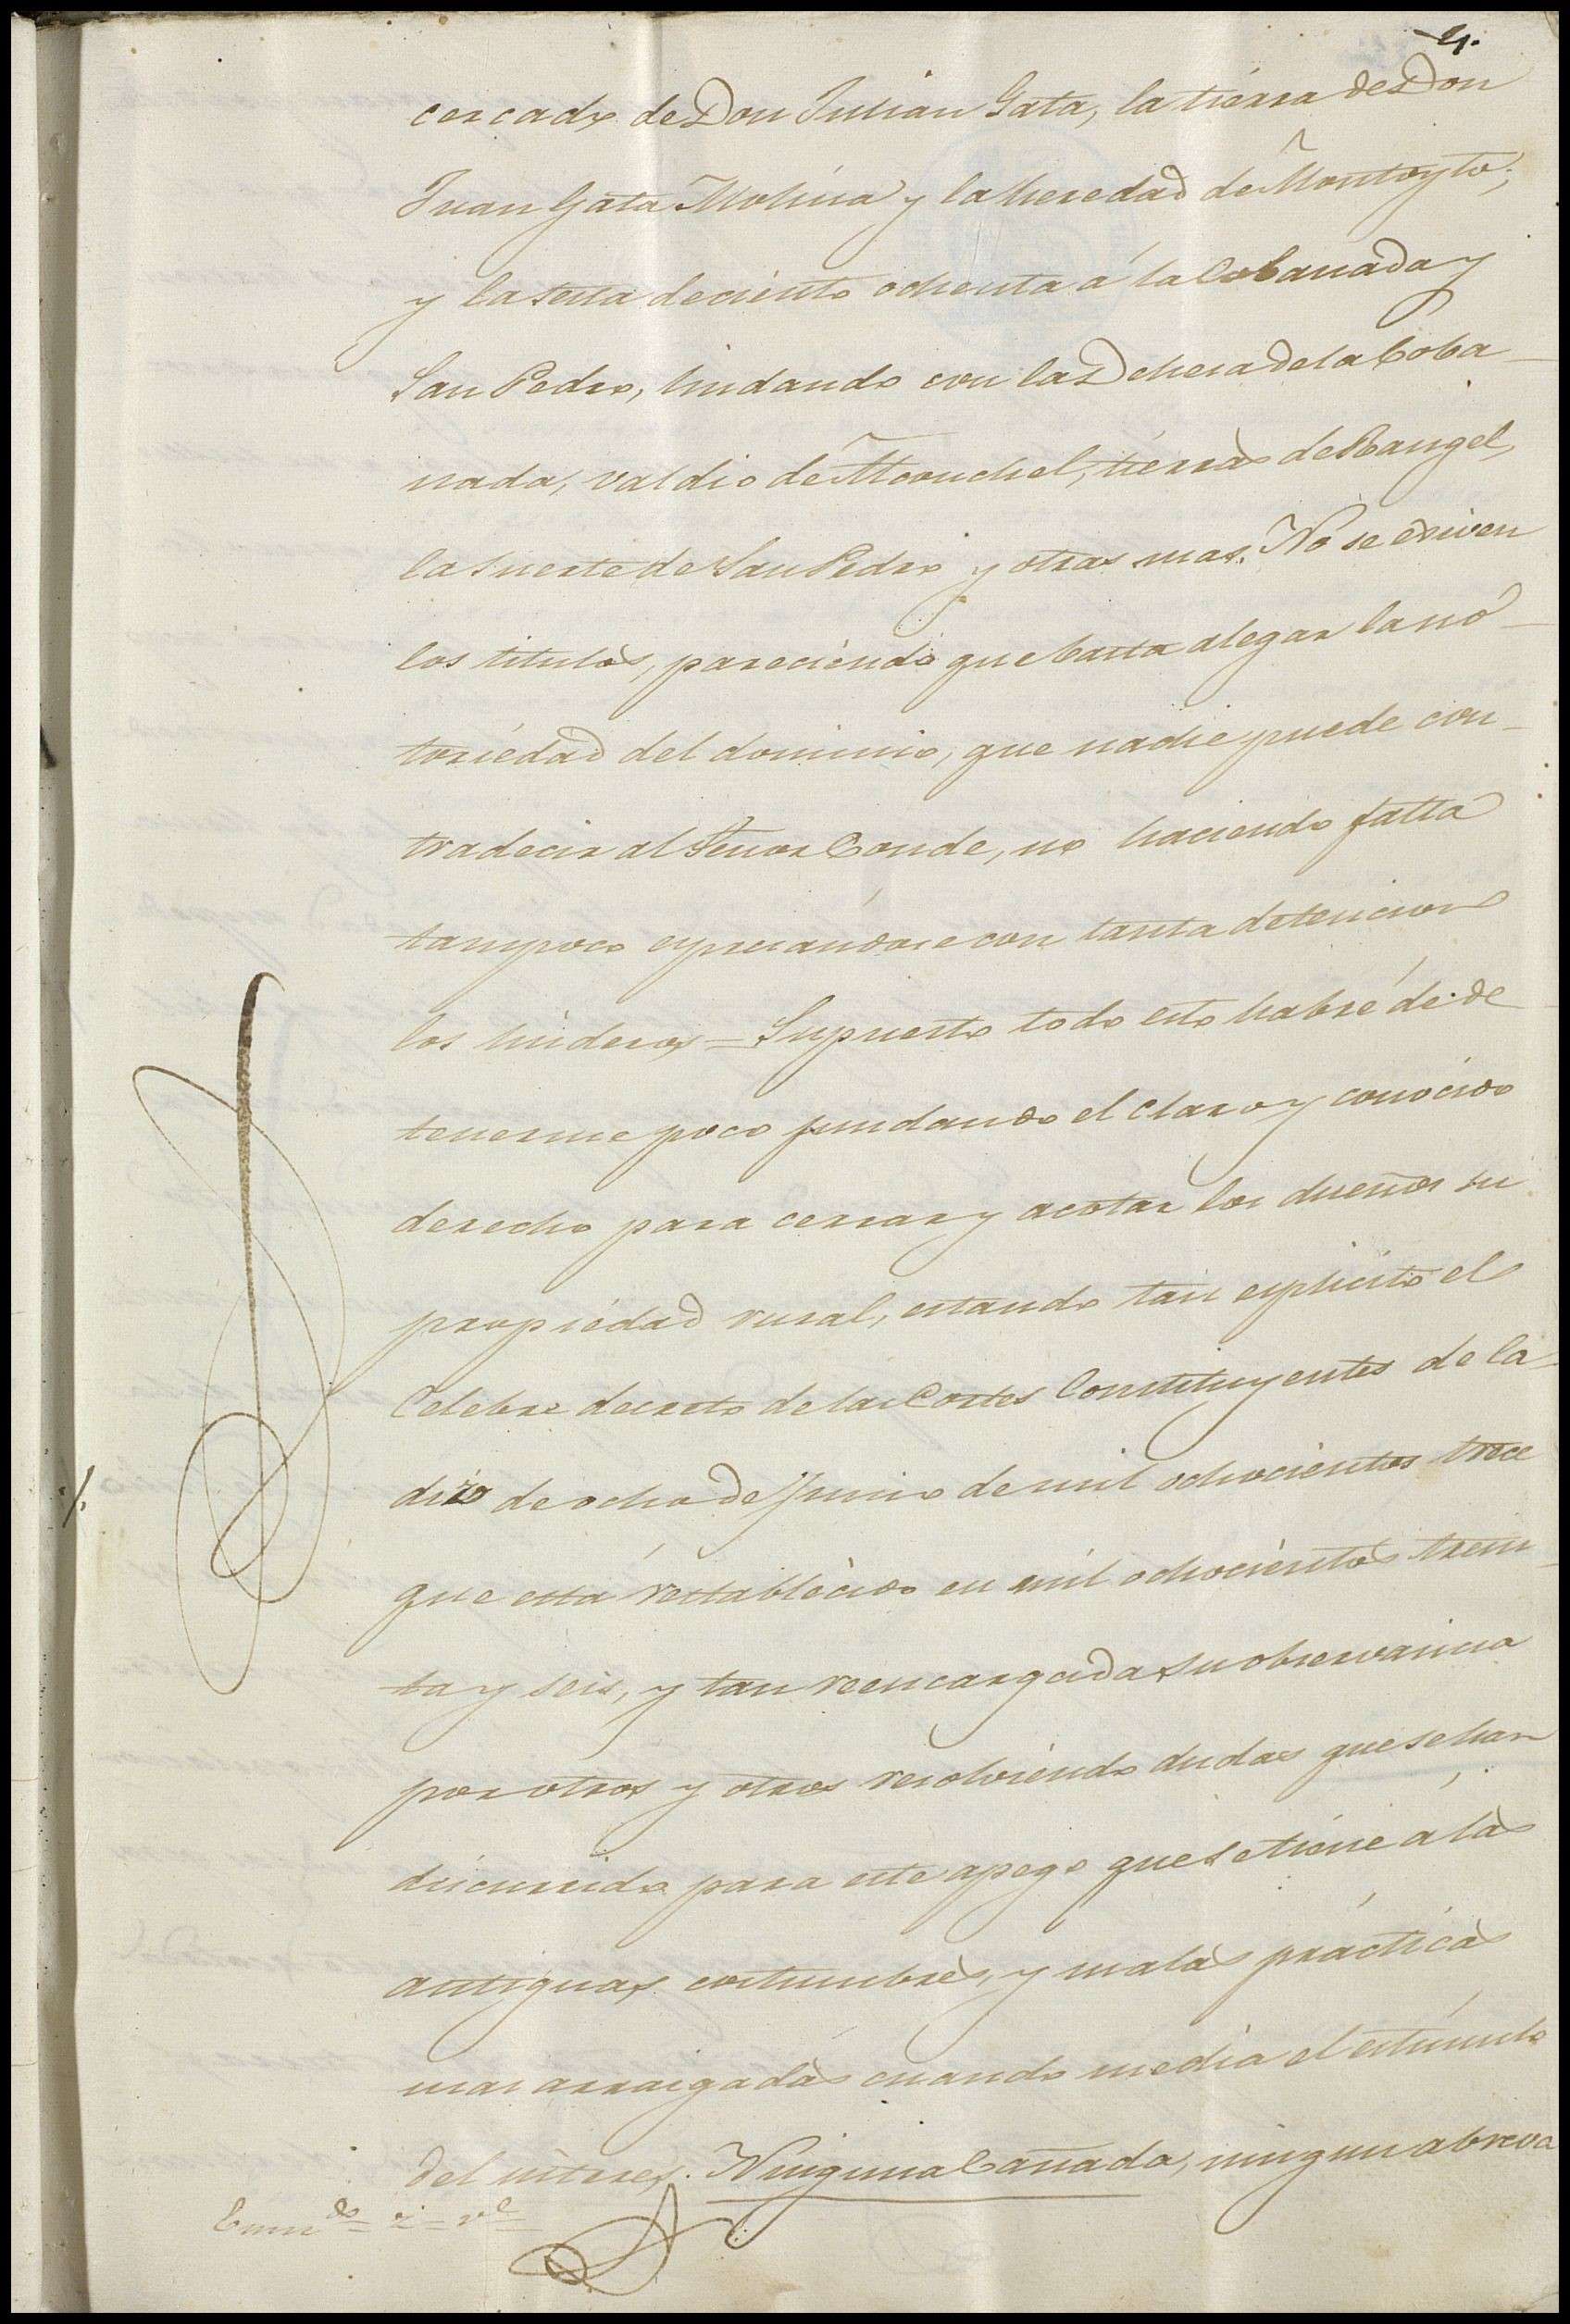 4.
cercado de Don Julian Gata, la tierra de Don
Juan Gata Molina y la heredad de Montoyto;
y la sesta de ciento ochenta á la Cobanada y
San Pedro, lindando con la Dehesa de la Coba-
nada, valdio de Alconchel, tierras de Rangel,
la suerte de San Pedro y otras mas. No se exiven
los titulos, pareciendo que basta alegar la no-
toriedad del dominio, que nadie puede con-
tradecir al Señor Conde, no haciendo falta
tampoco expresandose con tanta detencion
los linderos = Supuesto todo esto habré de de
tenerme poco fundando el claro y conocido
derecho para cerrar y acotar los dueños su
propiedad rural, estando tan esplicito el
Celebre decreto de las Cortes Constituyentes de la
dizo de ocho de Junio de mil ochocientos trece
que está restablecido en mil ochocientos trein-
ta y seis, y tan reencargada su observancia
por otros y otros resolviendo dudas que se han
discurrido para este apego que se tiene a las
antiguas costumbres, y malas prácticas
mas arraigadas cuando media el estimulo
del interes. Ninguna Cañada, ningun abreva
Enmdo = z = vle